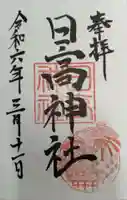 奉拝
日高神社
令和六年三月十一日